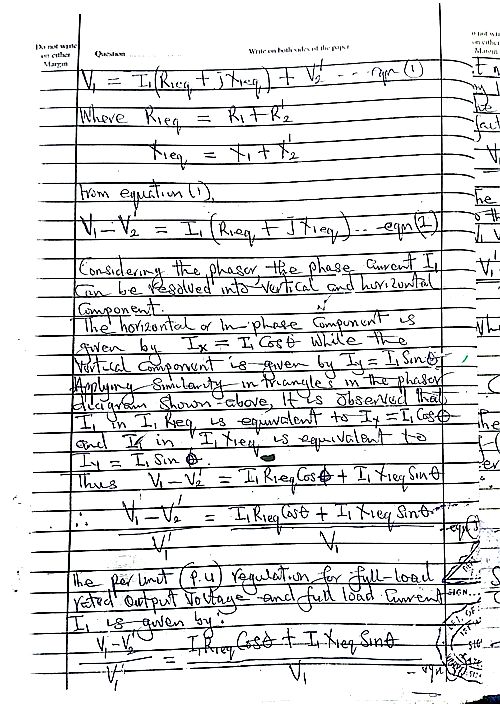 Do not write
on either
Margin
Question
Write on both sides of the paper
V₁ = I₁(R₁eq + jX₁eq) + V₂' --- eqn (1)
Where R₁eq = R₁ + R₂'
X₁eq = X₁ + X₂'
From equation (1),
V₁ - V₂' = I₁ (R₁eq + jX₁eq) --- eqn (2)
Considering the phasor, the phase current I₁
Can be resolved into vertical and horizontal
Component.
The horizontal or In-phase Component is
given by Iₓ = I₁ Cosθ While the
Vertical Component is given by Iy = I₁ Sinθ.
Applying Similarity in triangles in the phasor
diagram shown above, It is observed that
I₁ in I₁ R₁eq is equivalent to Iₓ = I₁ Cosθ
and I₁ in I₁ X₁eq is equivalent to
Iy = I₁ Sin θ.
Thus V₁ - V₂' = I₁ R₁eq Cosθ + I₁ X₁eq Sinθ
∴ V₁ - V₂' / V₁ = I₁ R₁eq Cosθ + I₁ X₁eq Sinθ / V₁ --- eqn
The per Unit (p.u) regulation for full-load
rated Output Voltage and full load Current
I₁ is given by:
V₁ - V₂' / V₁ = I₁ R₁eq Cosθ + I₁ X₁eq Sinθ / V₁ --- eqn
SIGN...